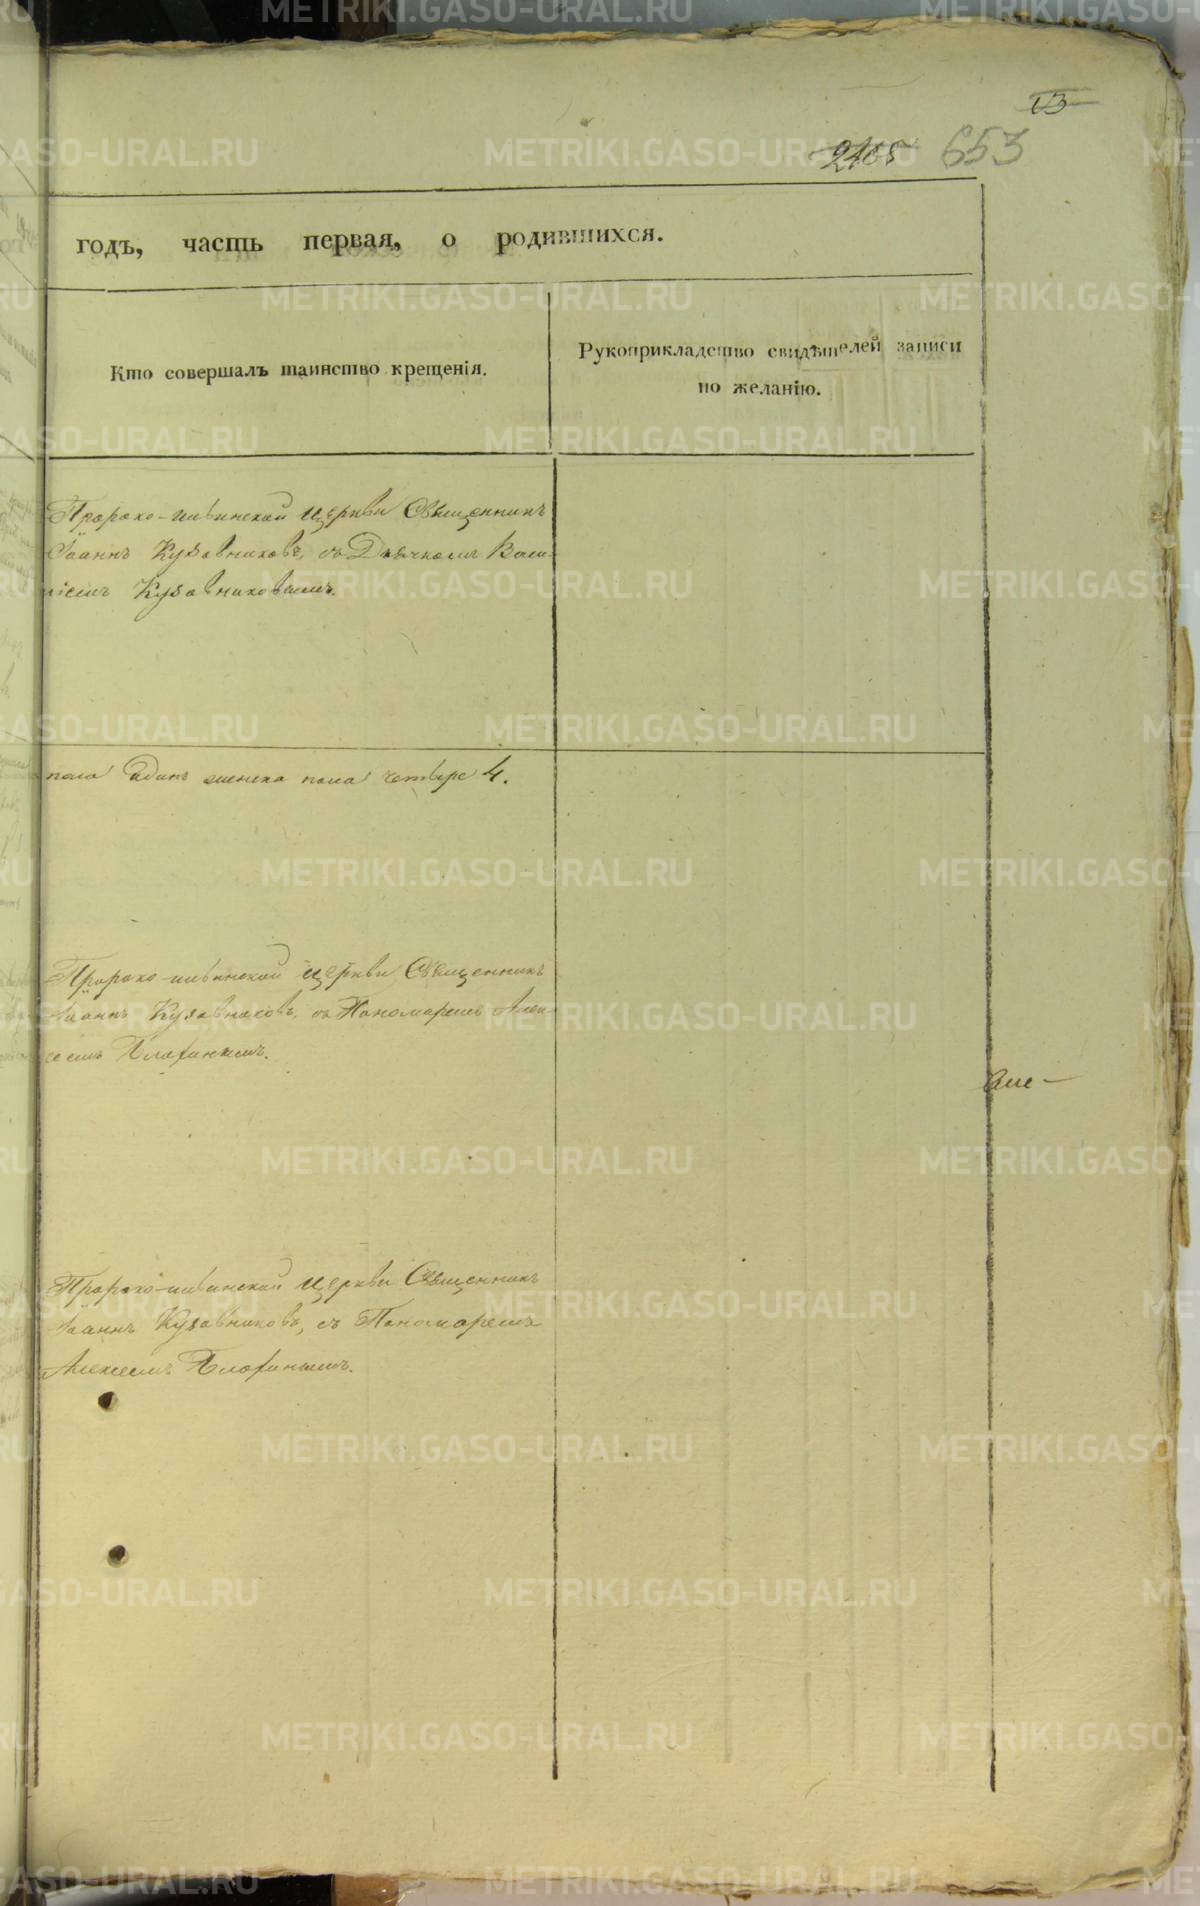 13
2165 653
годъ, часть первая, о родившихся.
Кто совершалъ таинство крещенія.
Рукоприкладство свидѣтелей записи
по желанію.
Пророко-ильинской церкви Священникъ
Іоаннъ Кузовниковъ, съ Дьячкомъ Васи-
ліемъ Кузовниковымъ.
пола одинъ женска пола четыре 4.
Пророко-ильинской церкви Священникъ
Іоаннъ Кузовниковъ, съ Пономаремъ Алек-
сѣемъ
Пророко-ильинской церкви Священникъ
Іоаннъ Кузовниковъ, съ Пономаремъ
Алексѣемъ
METRIKI.GASO-URAL.RU